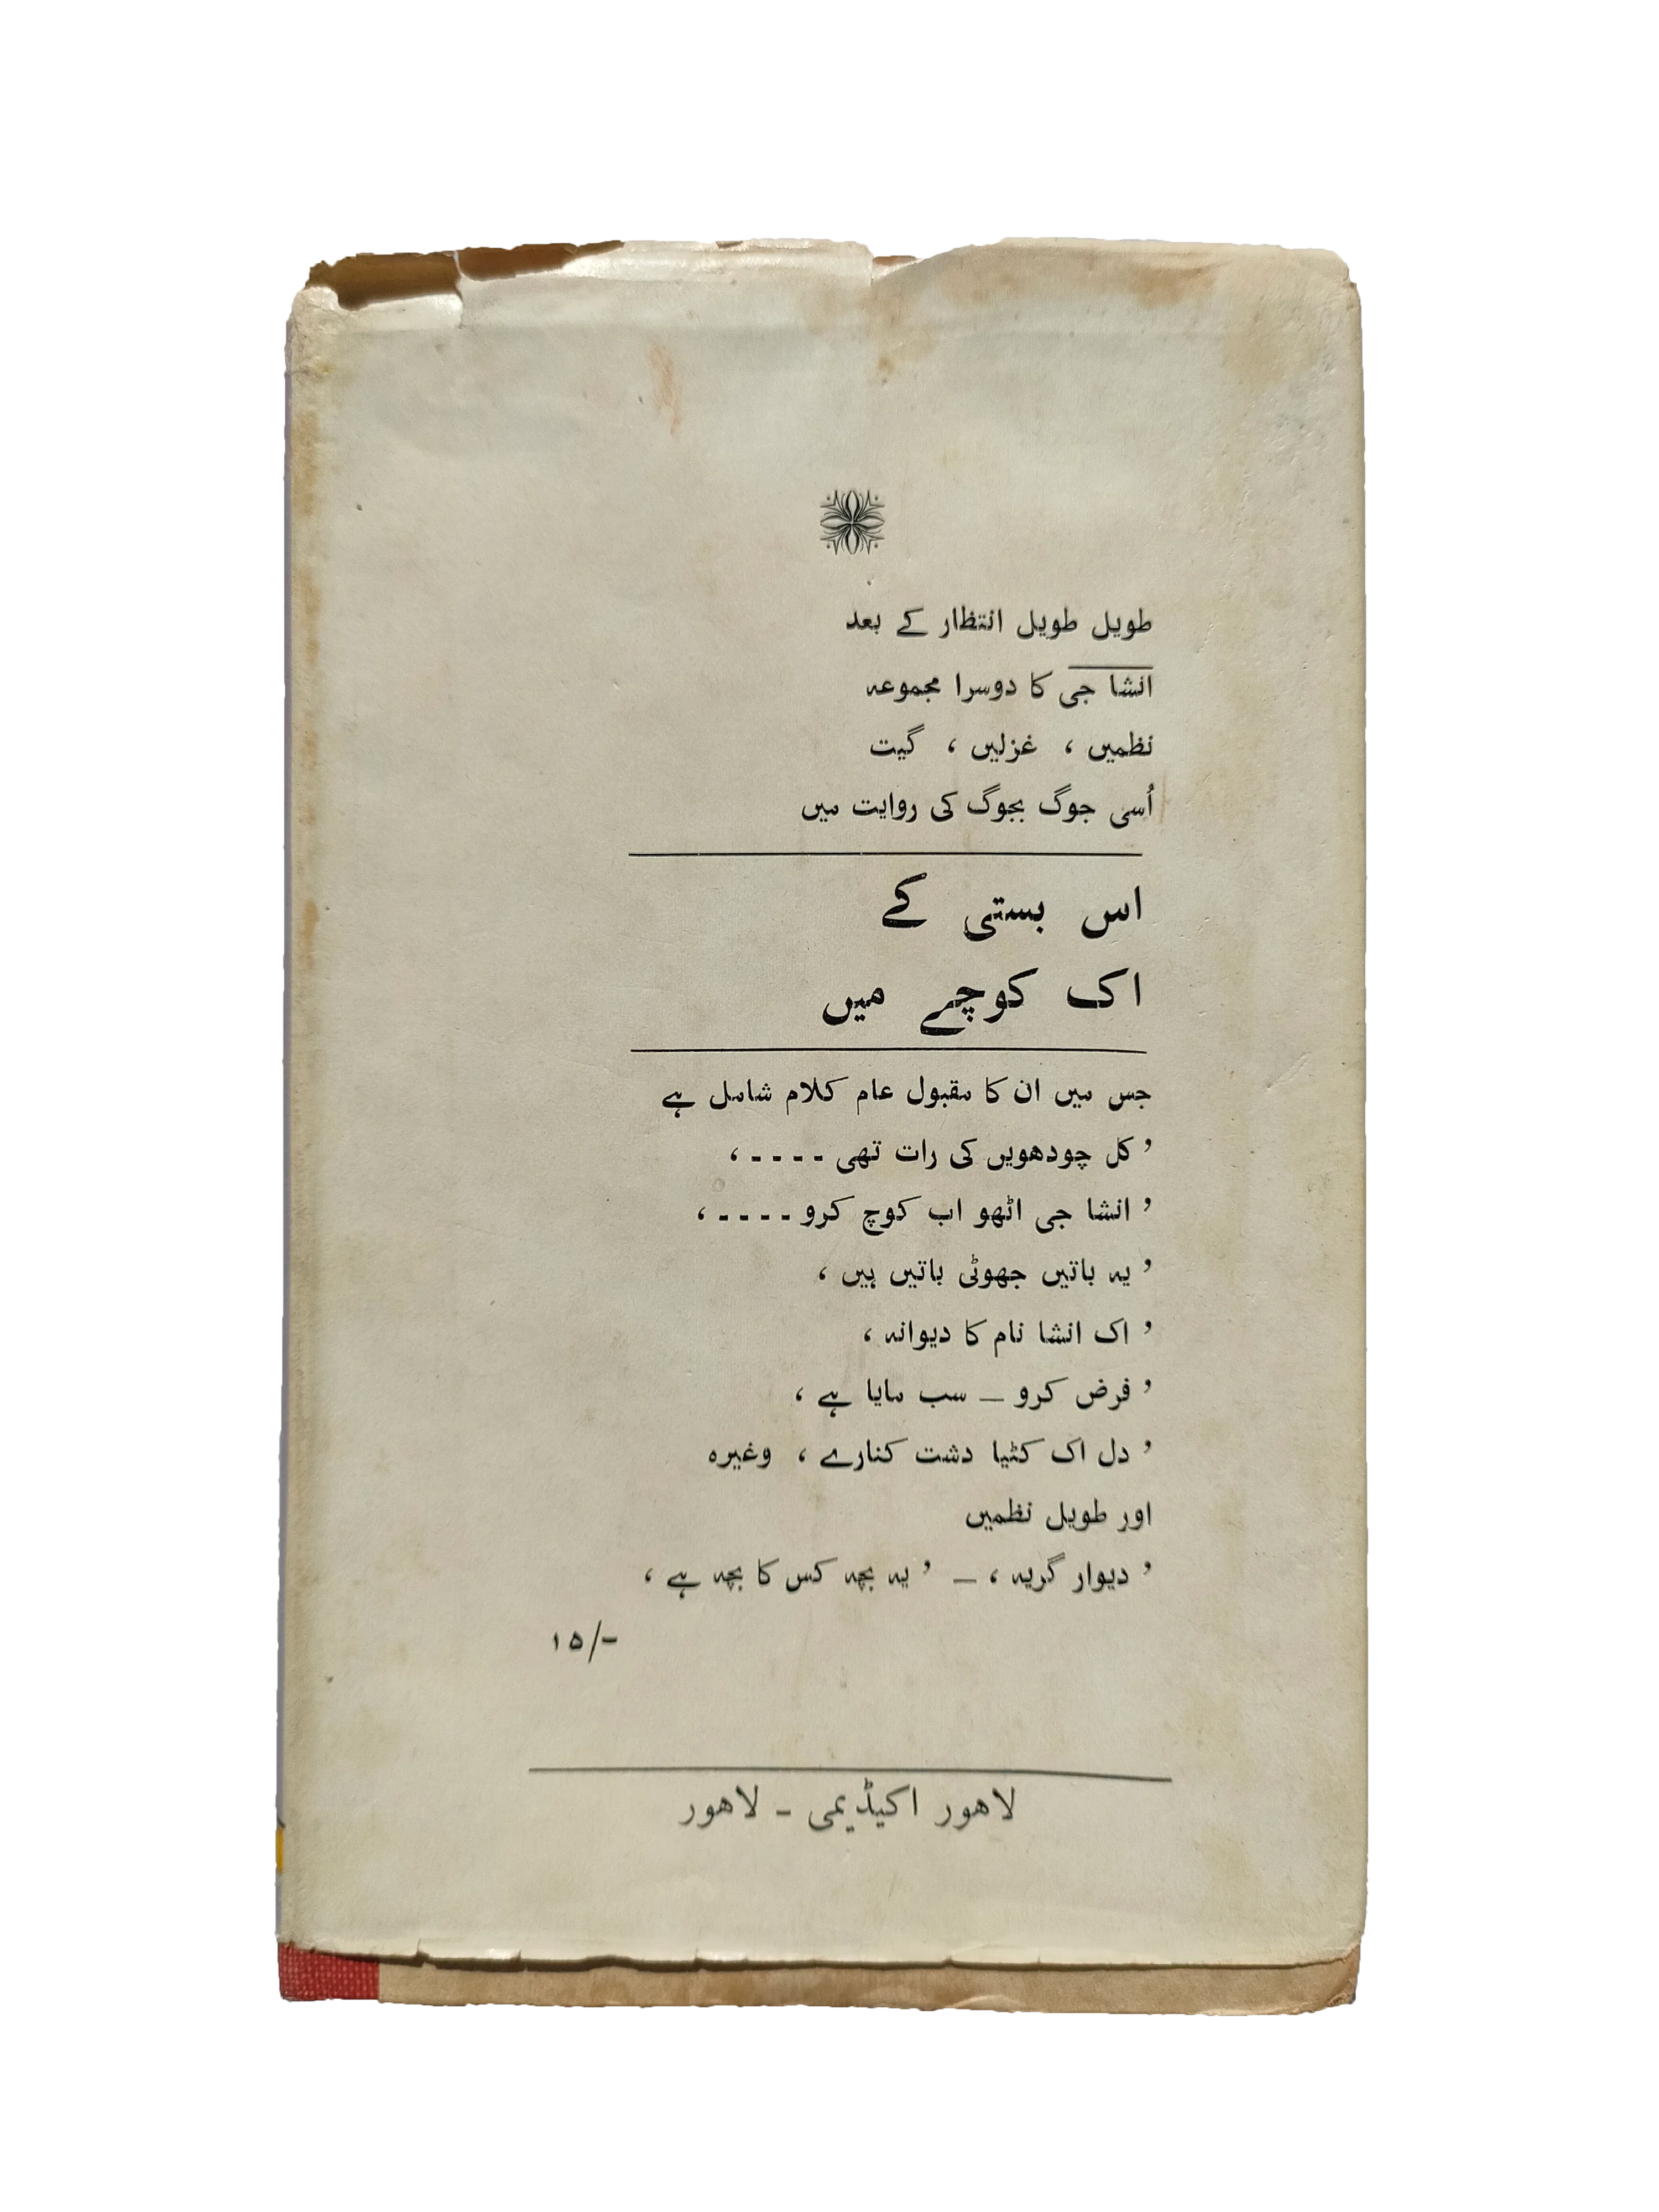 طویل طویل انتظار کے بعد
انشا جی کا دوسرا مجموعہ
نظمیں ، غزلیں ، گیت
اُسی جوگ بجوگ کی روایت میں
اس بستی کے
اک کوچے میں
جس میں ان کا مقبول عام کلام شامل ہے
’ کل چودھویں کی رات تھی - - - - ،
’ انشا جی اٹھو اب کوچ کرو - - - - ،
’ یہ باتیں جھوٹی باتیں ہیں ،
’ اک انشا نام کا دیوانہ ،
’ فرض کرو — سب مایا ہے ،
’ دل اک کٹیا دشت کنارے ، وغیرہ
اور طویل نظمیں
’ دیوار گریہ ، — ’ یہ بچہ کس کا بچہ ہے ،
۱۵/-
لاھور اکیڈیمی - لاھور